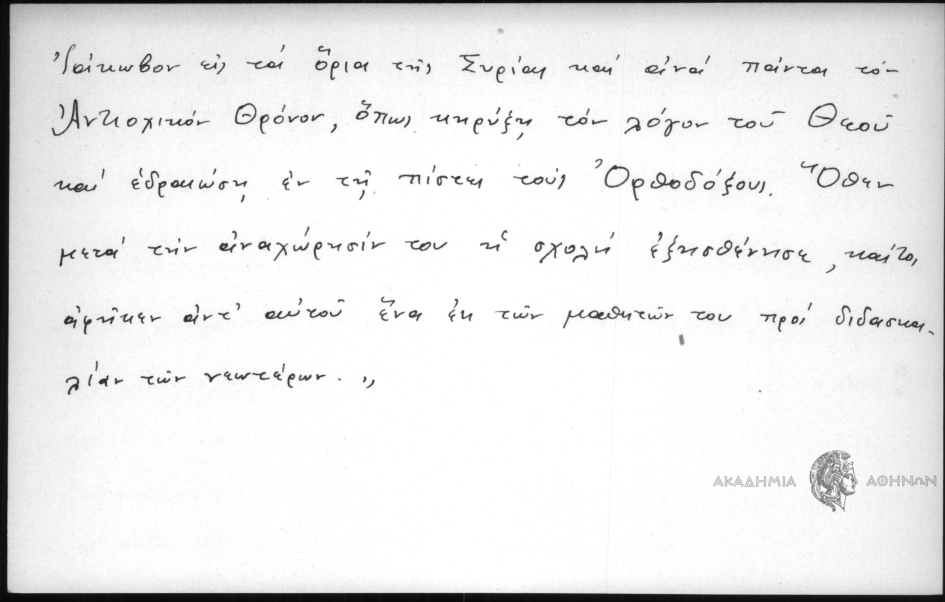 Ἰάκωβον εἰς τά ὅρια τῆς Συρίας καί ἀνά πάντα τόν
Ἀντιοχικόν Θρόνον, ὅπως κηρύξῃ τόν λόγον τοῦ Θεοῦ
καί ἑδραιώσῃ ἐν τῇ πίστει τούς Ὀρθοδόξους. Ὅθεν
μετά τήν ἀναχώρησίν του ἡ σχολή ἐξησθένησε, καίτοι
ἀφῆκεν ἀντ' αὐτοῦ ἕνα ἐκ τῶν μαθητῶν του πρός διδασκα-
λίαν τῶν νεωτέρων. „
ΑΚΑΔΗΜΙΑ ΑΘΗΝΩΝ